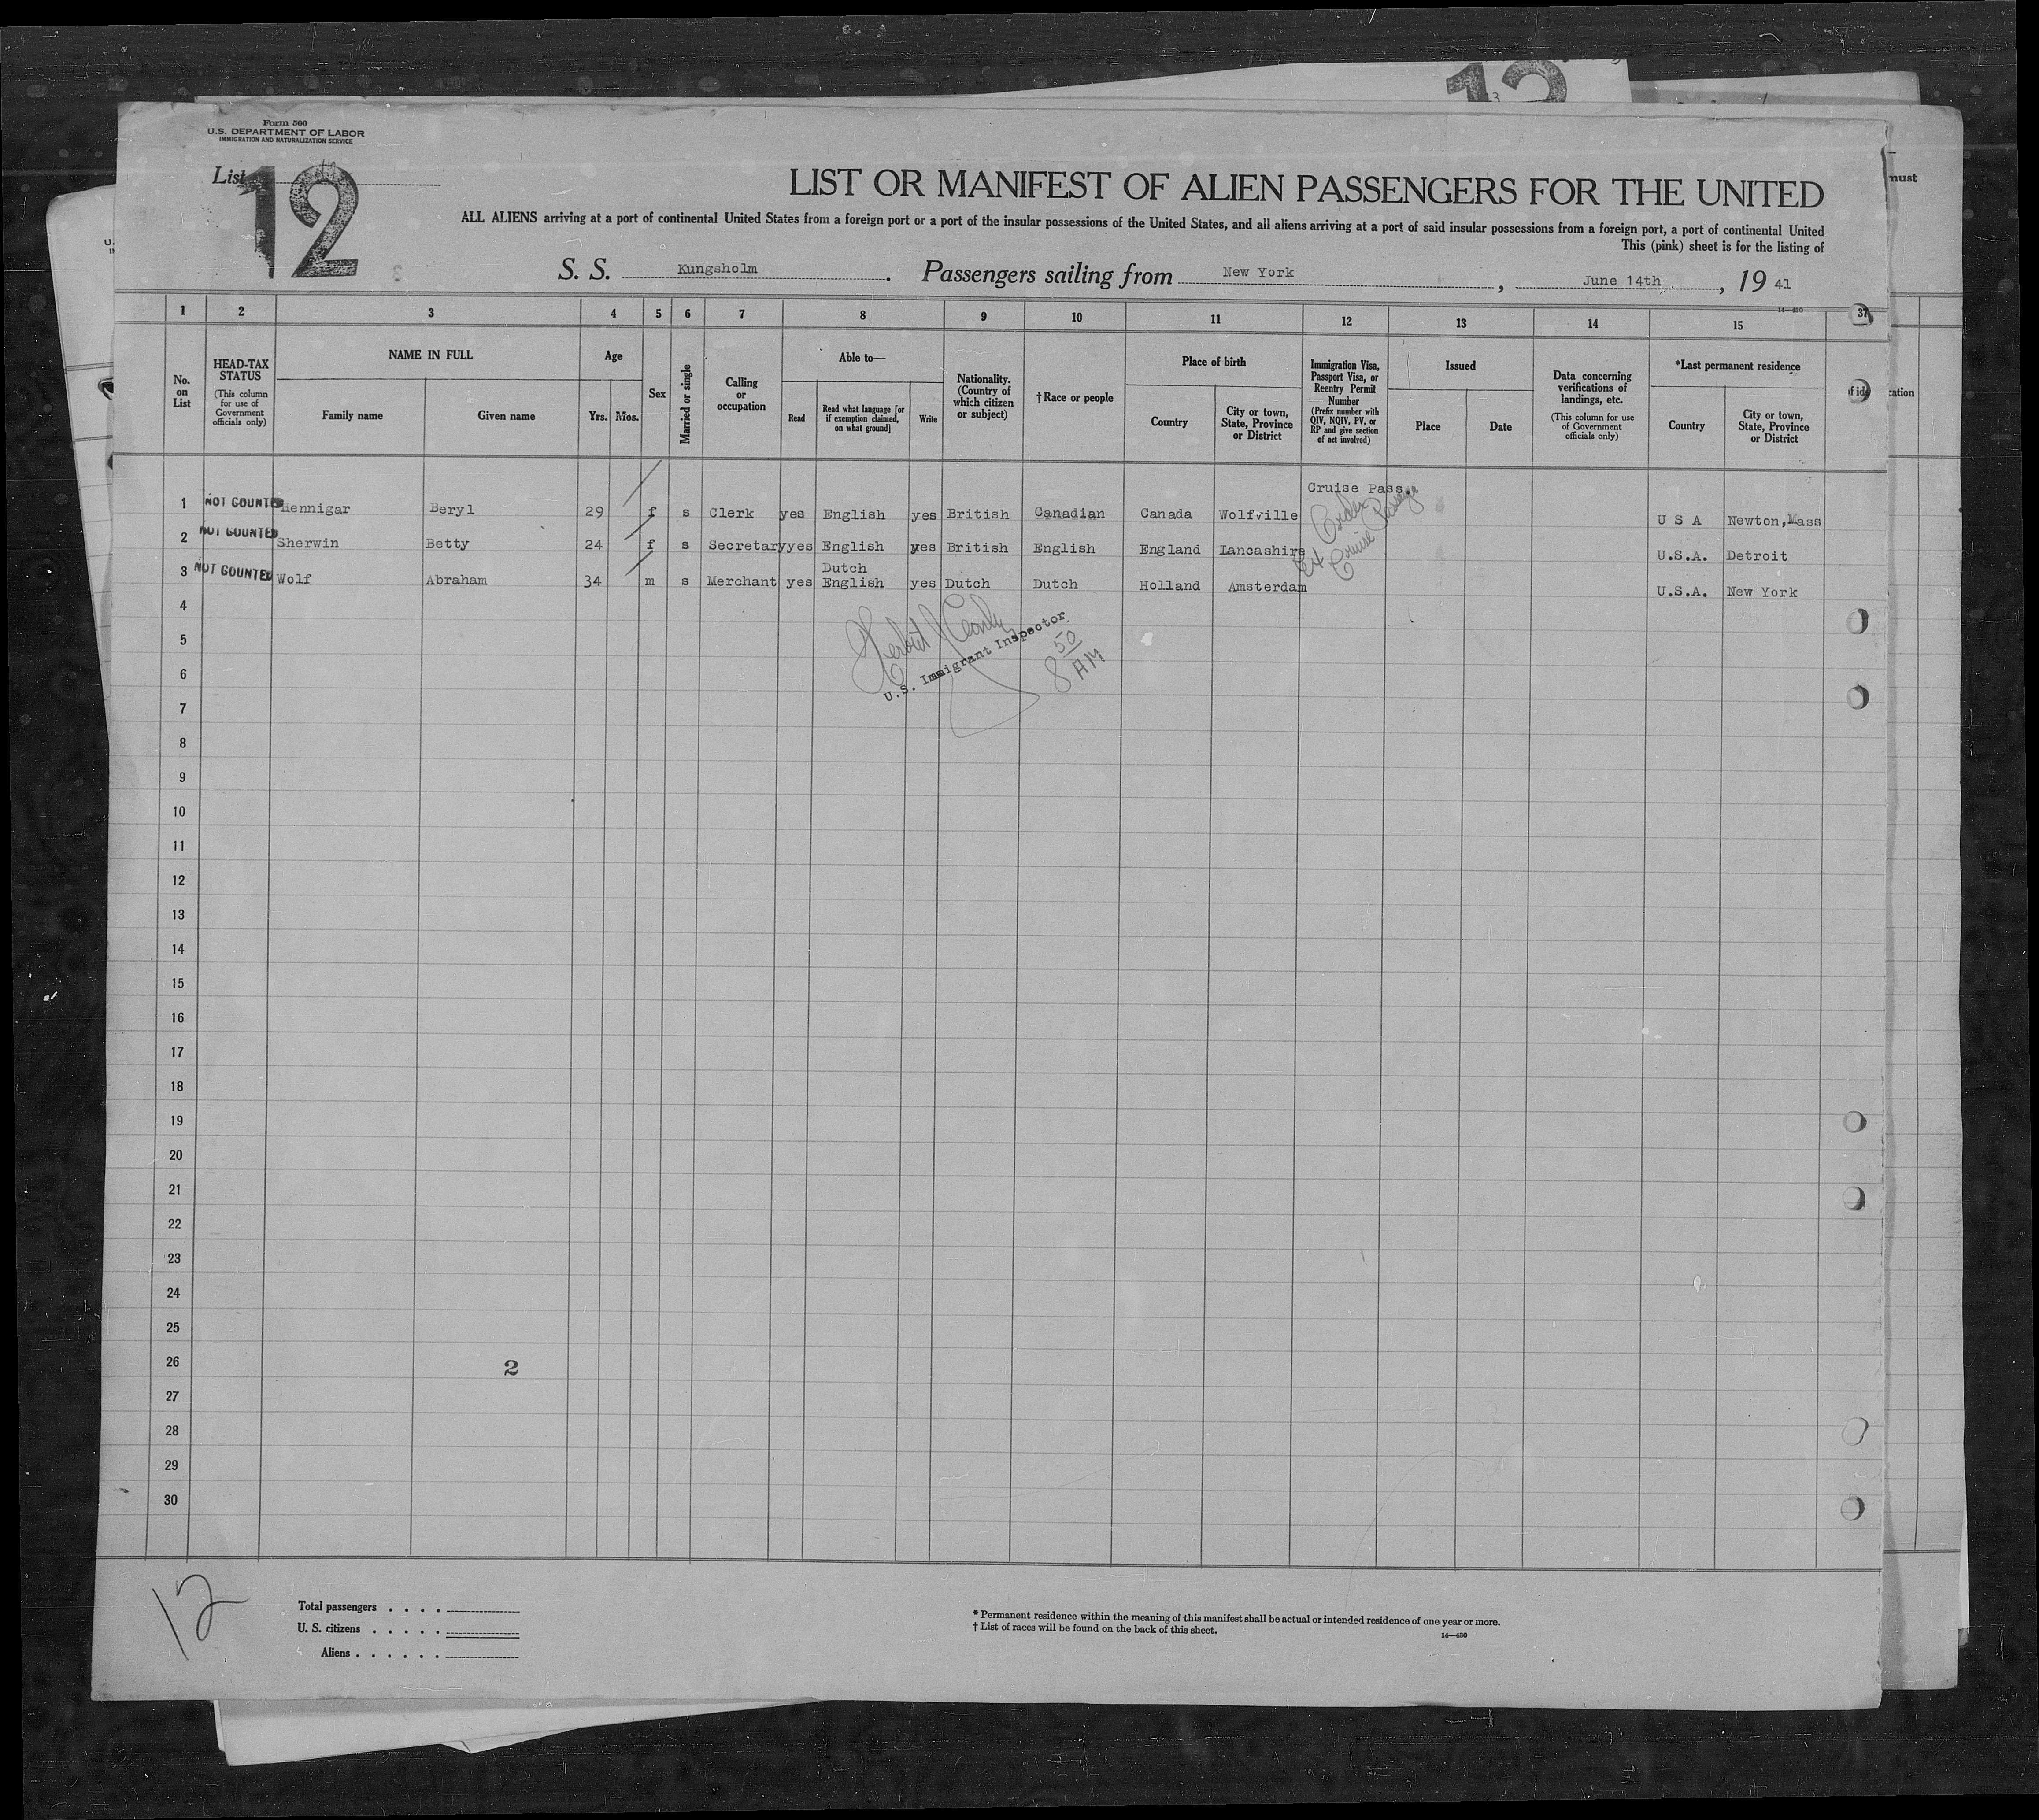 13
Form 500
U.S. DEPARTMENT OF LABOR
IMMIGRATION AND NATURALIZATION SERVICE
List
12
must
LIST OR MANIFEST OF ALIEN PASSENGERS FOR THE UNITED
ALL ALIENS arriving at a port of continental United States from a foreign port or a port of the insular possessions of the United States, and all aliens arriving at a port of said insular possessions from a foreign port, a port of continental United
This (pink) sheet is for the listing of
S. S. Kungsholm. Passengers sailing from New York, June 14th, 19 41
14—430
1 2 3 4 5 6 7 8 9 10 11 12 13 14 15 37
No. on List
HEAD-TAX STATUS (This column for use of Government officials only)
NAME IN FULL
Family name Given name
Age
Yrs. Mos.
Sex
Married or single
Calling or occupation
Able to—
Read
Read what language [or if exemption claimed, on what ground]
Write
Nationality. (Country of which citizen or subject)
†Race or people
Place of birth
Country
City or town, State, Province or District
Immigration Visa, Passport Visa, or Reentry Permit Number (Prefix number with QIV, NQIV, PV, or RP and give section of act involved)
Issued
Place Date
Data concerning verifications of landings, etc. (This column for use of Government officials only)
*Last permanent residence
Country
City or town, State, Province or District
cation
Cruise Pass.
1 NOT COUNTED Hennigar Beryl 29 f s Clerk yes English yes British Canadian Canada Wolfville U S A Newton,Mass
2 NOT COUNTED Sherwin Betty 24 f s Secretary yes English yes British English England Lancashire U.S.A. Detroit
Dutch
3 NOT COUNTED Wolf Abraham 34 m s Merchant yes English yes Dutch Dutch Holland Amsterdam U.S.A. New York
Cruise
U.S. Immigrant Inspector
8 50 AM
4
5
6
7
8
9
10
11
12
13
14
15
16
17
18
19
20
21
22
23
24
25
26 2
27
28
29
30
12
Total passengers . . . .
U. S. citizens . . . . .
Aliens . . . . . .
* Permanent residence within the meaning of this manifest shall be actual or intended residence of one year or more.
† List of races will be found on the back of this sheet.
14—430